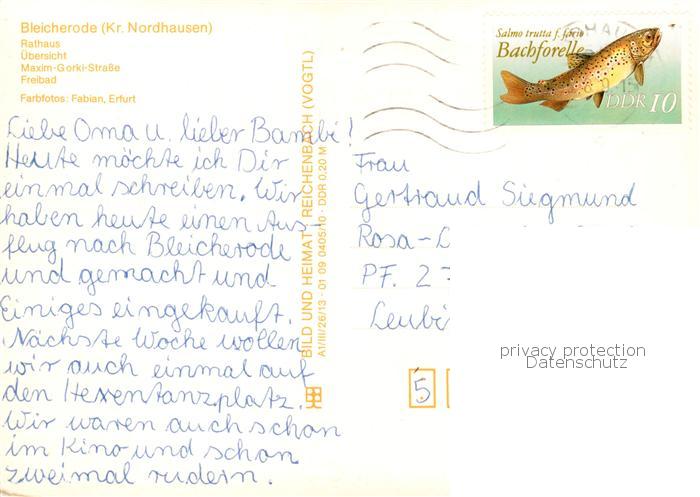 Bleicherode (Kr. Nordhausen)
Rathaus
Übersicht
Maxim-Gorki-Straße
Freibad
Farbfotos: Fabian, Erfurt
Liebe Oma u. lieber Bambi!
Heute möchte ich Dir
einmal schreiben. Wir
haben heute einen Aus-
flug nach Bleicherode
und gemacht und
Einiges eingekauft.
Nächste Woche wollen
wir auch einmal auf
den Hexentanzplatz.
Wir waren auch schon
im Kino und schon
zweimal rudern.
BILD UND HEIMAT REICHENBACH (VOGTL)
A1/III/26/13 · 01 09 0405/10 · DDR 0,20 M
Salmo trutta f. fario
Bachforelle
DDR 10
Frau
Gertraud Siegmund
Rosa-L
PF. 27
Leubi
5
privacy protection
Datenschutz